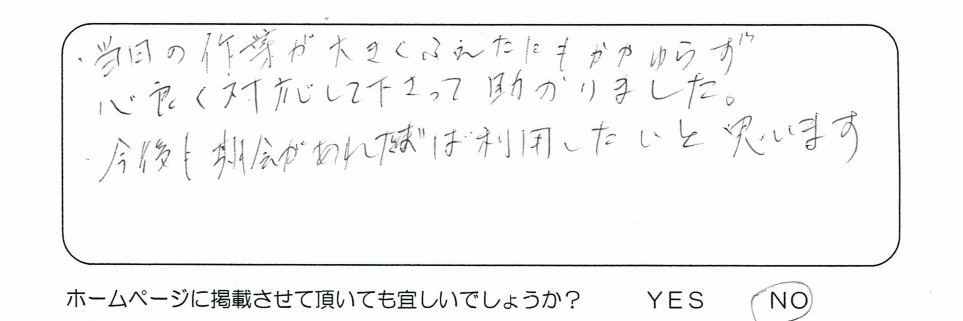 ・当日の作業が大きくふえたにもかかわらず
心良く対応して下さって助かりました。
・今後も期会があれば利用したいと思います
ホームページに掲載させて頂いても宜しいでしょうか? YES NO